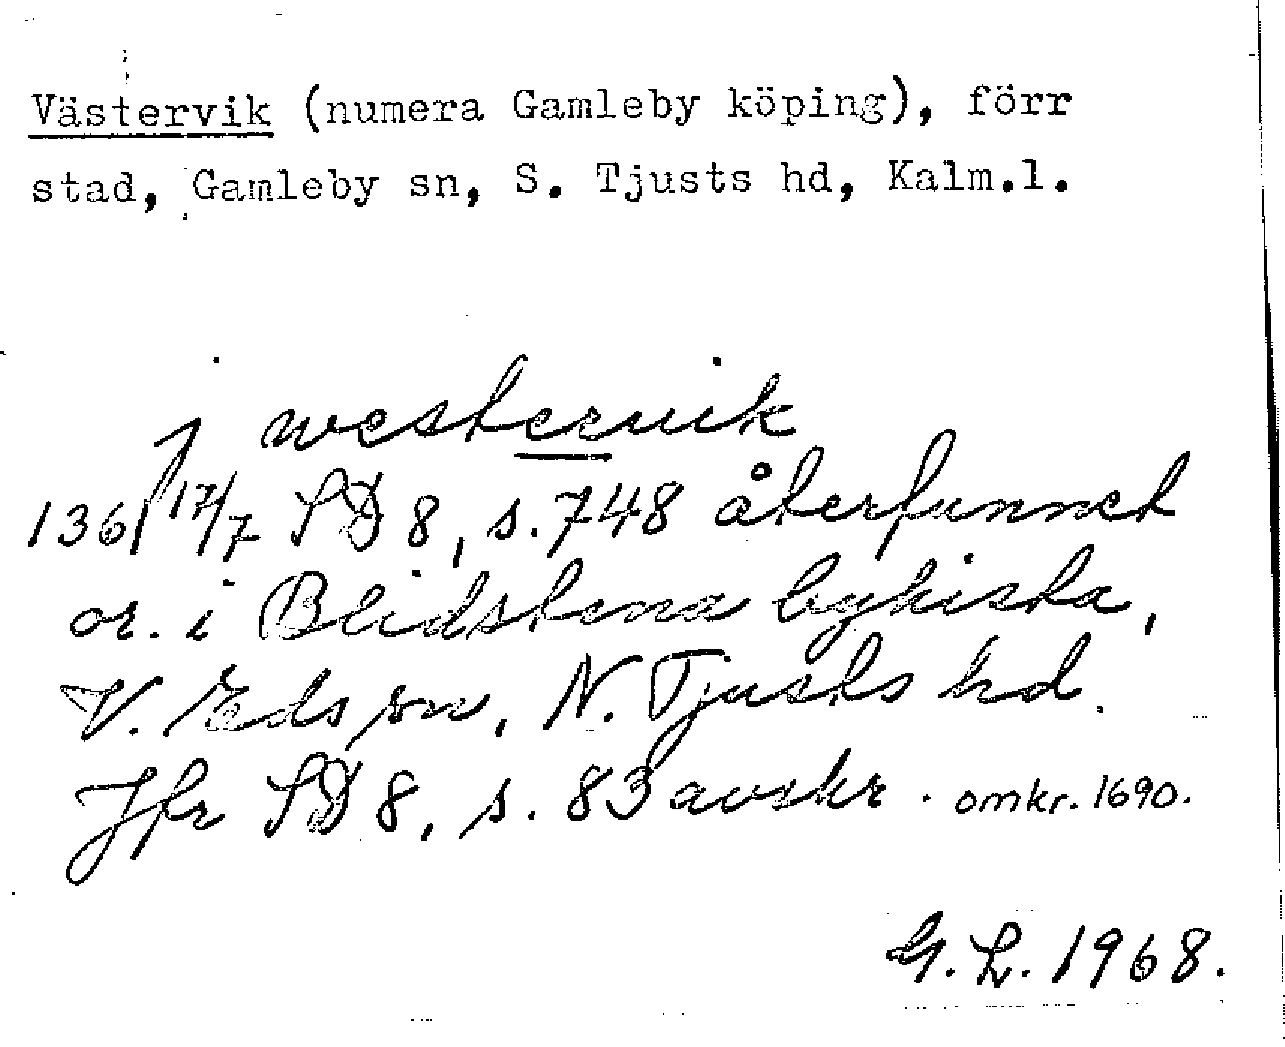 Västervik (numera Gamleby köping), förr
stad, Gamleby sn, S. Tjusts hd, Kalm.l.
j westervik
1361 17/7 SD 8, s. 748 återfunnet
or. i Blidstena bykista,
V. Eds sn, N. Tjusts hd.
Jfr SD 8, s. 83 avskr. omkr. 1690.
G. L. 1968.